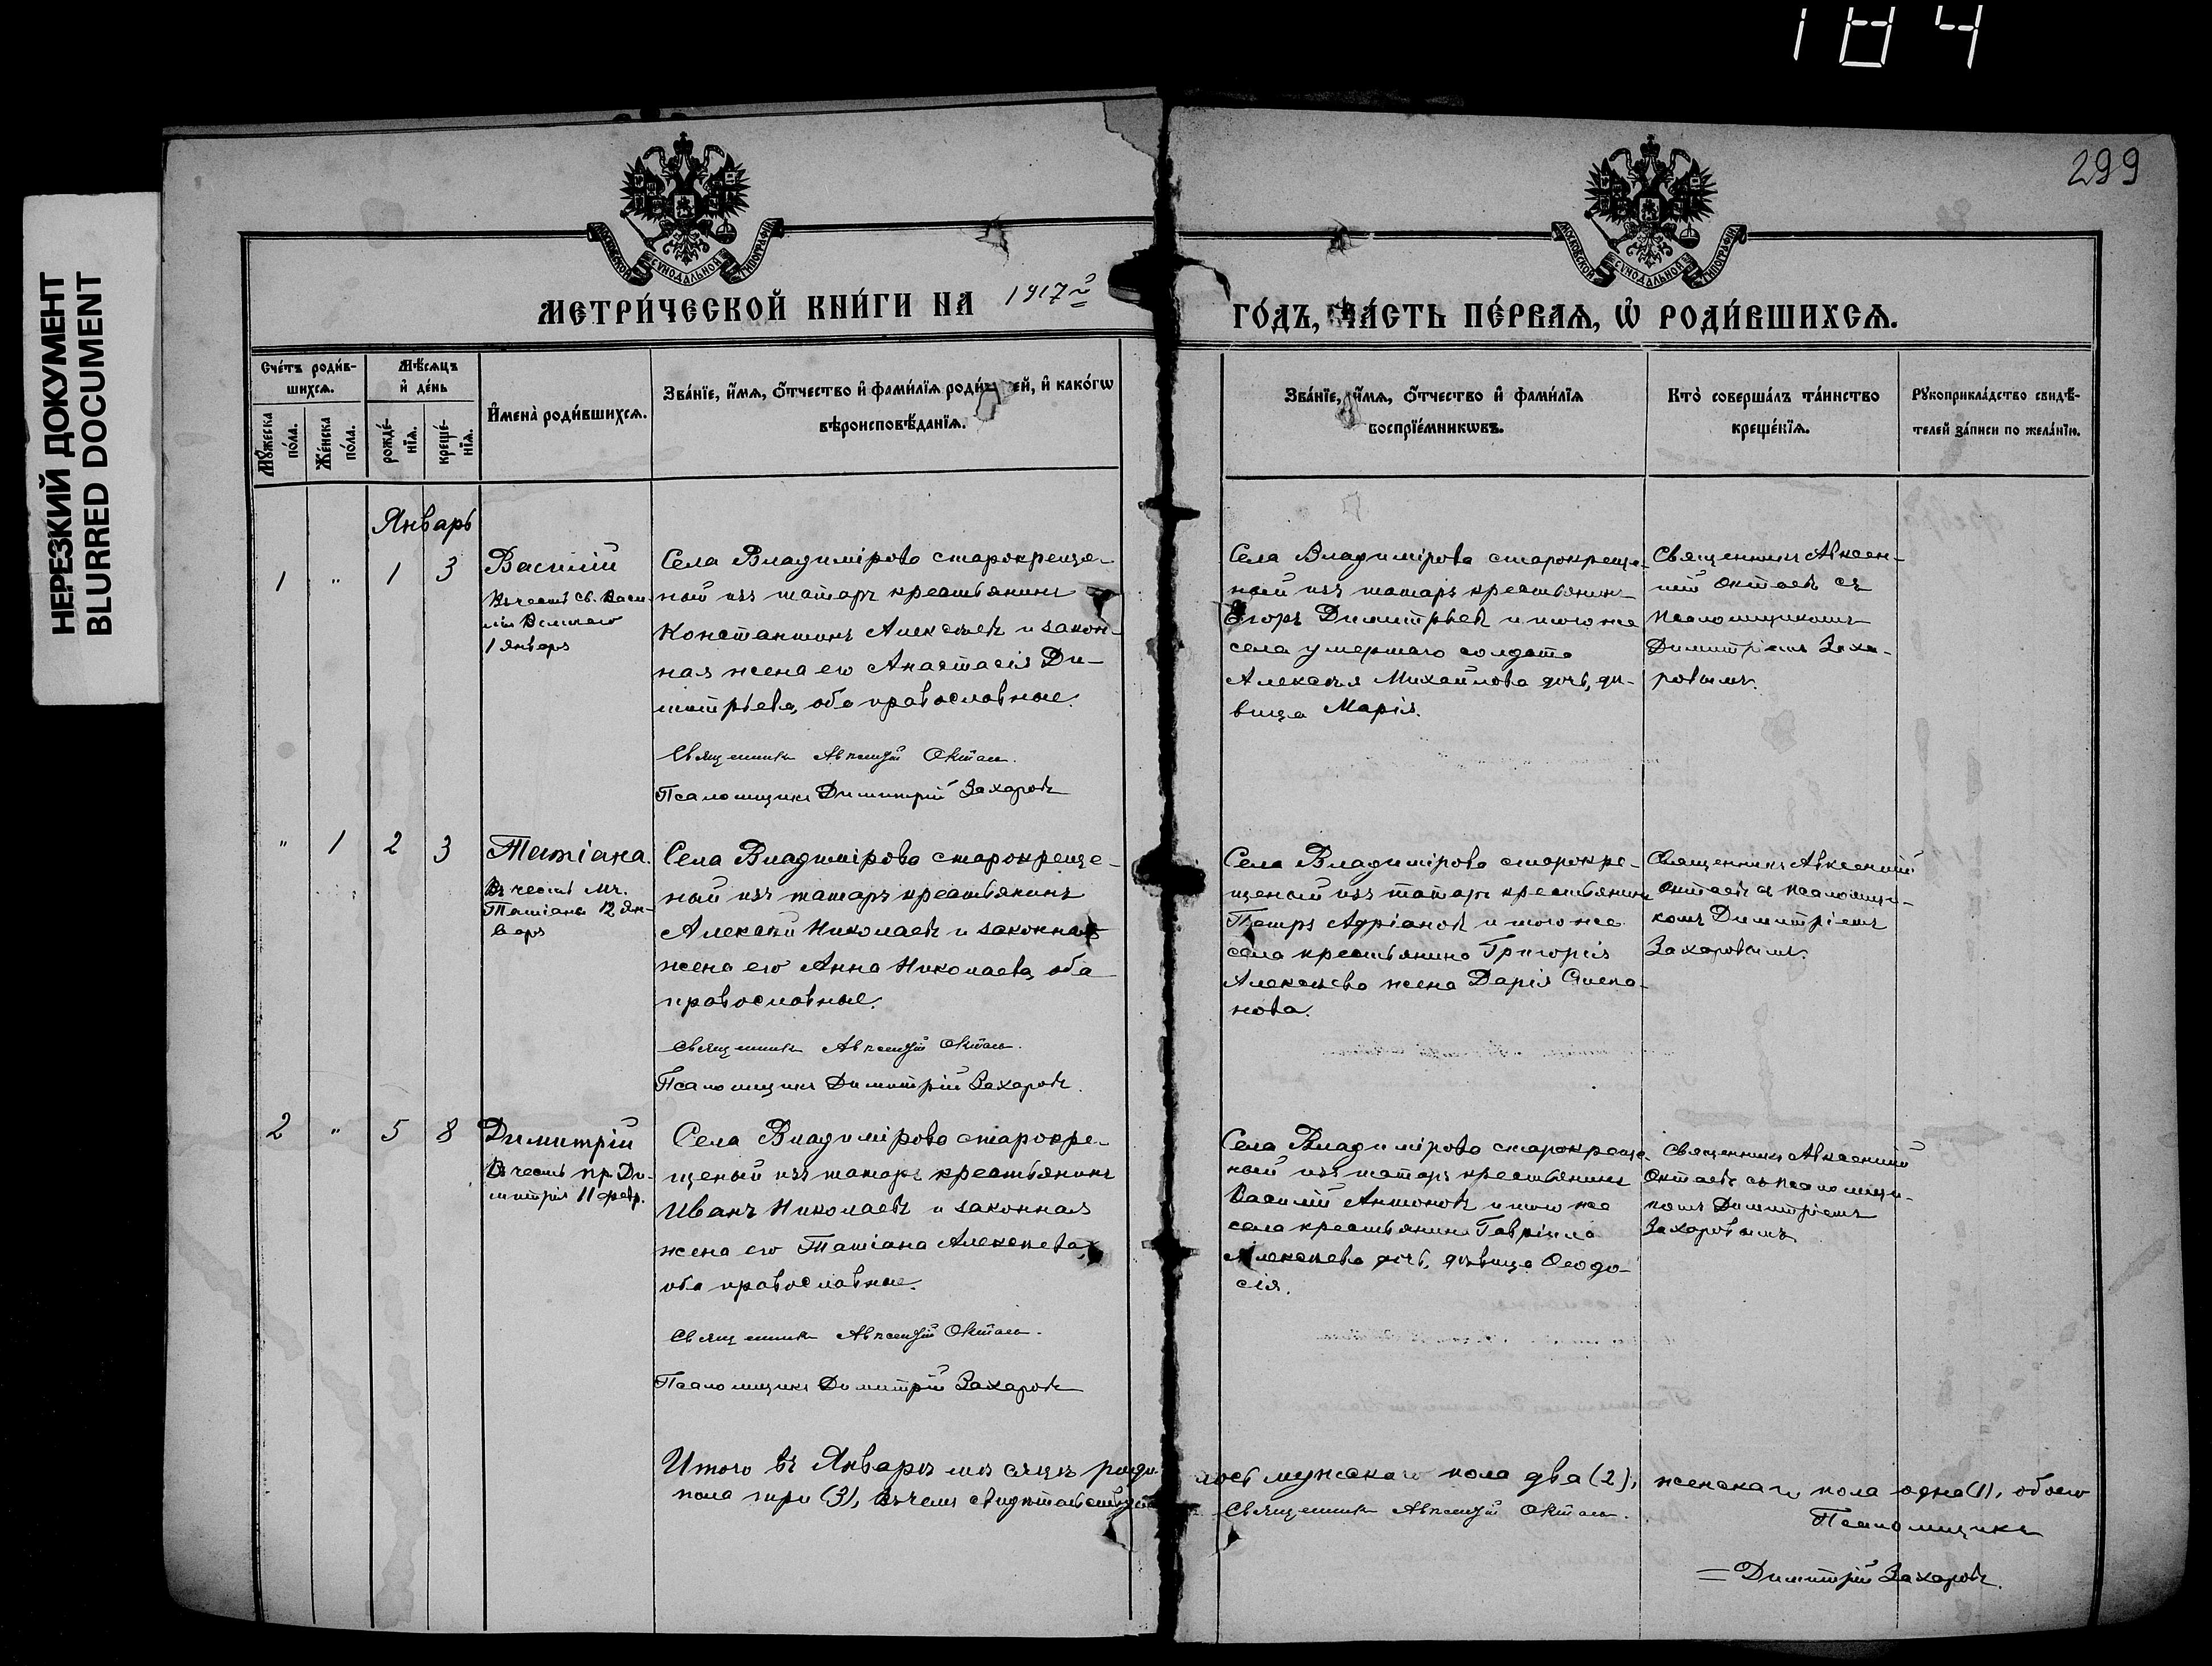 184
НЕРЕЗКИЙ ДОКУМЕНТ
BLURRED DOCUMENT
299
МОСКОВСКОЙ СѴНОДАЛЬНОЙ ТИПОГРАФІИ
МОСКОВСКОЙ СѴНОДАЛЬНОЙ ТИПОГРАФІИ
МЕТРИ́ЧЕСКОЙ КНИ́ГИ НА 1917й
ГО́ДЪ, ЧА́СТЬ ПЕ́РВАЯ, Ѡ҆ РОДИ́ВШИХСЯ.
Сче́тъ роди́в-
шихся.
Мꙋжеска по́ла.
Же́нска по́ла.
Мѣ́сяцъ
и҆ де́нь
рожде́-
нїя.
креще́-
нїя.
И҆мена̀ роди́вшихся.
Зва́нїе, и҆́мя, ѻ҆́тчество и҆ фами́лїя роди́т ей, и҆ како́гѡ
вѣроисповѣ́данїя.
Зва́нїе, и҆́мя, ѻ҆́тчество и҆ фами́лїя
воспрїе́мникѡвъ.
Кто̀ соверша́лъ та́инство
креще́нїя.
Рꙋкоприкла́дство свидѣ́-
телей за́писи по жела́нїю.
Январь
1 " 1 3
Василій
Въ честь св. Васи-
лія Великаго
1 января
Села Владимірова старокреще-
ный изъ татаръ крестьянинъ
Константинъ Алексѣевъ и закон-
ная жена его Анастасія Ди-
митріева, оба православные.
Священникъ Авксентій Октаевъ.
Псаломщикъ Димитрій Захаровъ
Села Владимірова старокреще-
ный изъ татаръ крестьянинъ
Егоръ Димитріевъ и того же
села умершаго солдата
Алексѣя Михайлова дочь, дѣ-
вица Марія.
Священникъ Авксен-
тій Октаевъ съ
псаломщикомъ
Димитріемъ Заха-
ровымъ.
" 1 2 3
Татіана.
Въ честь мч.
Татіаны 12 ян-
варя
Села Владимірова старокреще-
ный изъ татаръ крестьянинъ
Алексѣй Николаевъ и законная
жена его Анна Николаева, оба
православные.
Священникъ Авксентій Октаевъ.
Псаломщикъ Димитрій Захаровъ.
Села Владимірова старокре-
щеный изъ татаръ крестьянинъ
Петръ Адріановъ и того же
села крестьянина Григорія
Алексѣева жена Дарія Степа-
нова.
Священникъ Авксентій
Октаевъ съ псаломщи-
комъ Димитріемъ
Захаровымъ.
2 " 5 8
Димитрій
Въ честь пр. Ди-
митрія 11 февр.
Села Владимірова старокре-
щеный изъ татаръ крестьянинъ
Иванъ Николаевъ и законная
жена его Татіана Алексѣева,
оба православные.
Священникъ Авксентій Октаевъ.
Псаломщикъ Димитрій Захаровъ
Села Владимірова старокреще-
ный изъ татаръ крестьянинъ
Василій Антоновъ и того же
села крестьянина Гавріила
Алексѣева дочь, дѣвица Ѳеодо-
сія.
Священникъ Авксентій
Октаевъ съ псаломщи-
комъ Димитріемъ
Захаровымъ
Итого въ Январѣ мѣсяцѣ роди-
лось мужскаго пола два (2), женскаго пола одна (1), обоего
пола три (3), въ чемъ свидѣтельствуемъ
Священникъ Авксентій Октаевъ.
Псаломщикъ
Димитрій Захаровъ.